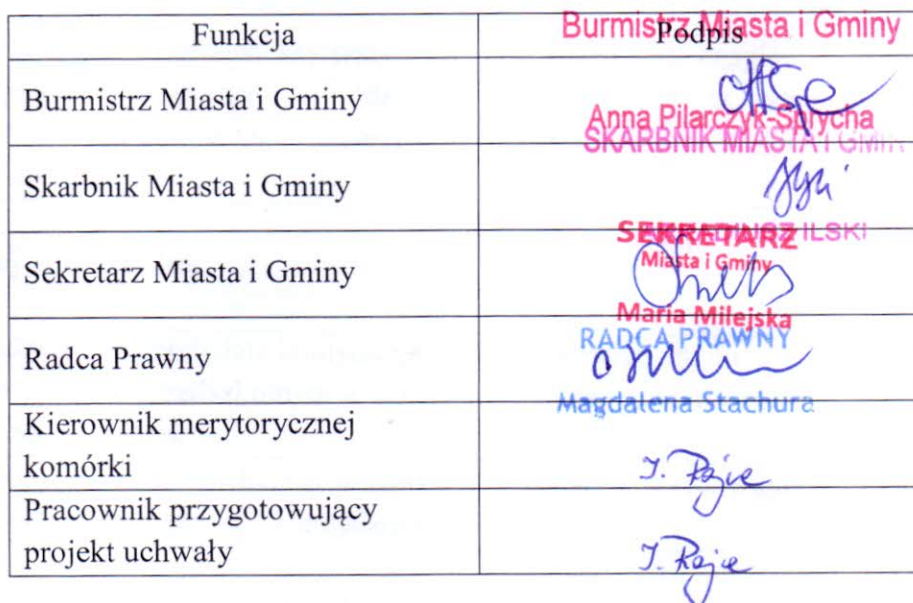 Funkcja
Podpis
Burmistrz Miasta i Gminy
Burmistrz Miasta i Gminy
Anna Pilarczyk-Sprycha
SKARBNIK MIASTA I GMIN
Skarbnik Miasta i Gminy
ILSKI
Sekretarz Miasta i Gminy
SEKRETARZ
Miasta i Gminy
Maria Milejska
Radca Prawny
RADCA PRAWNY
Magdalena Stachura
Kierownik merytorycznej
komórki
Pracownik przygotowujący
projekt uchwały